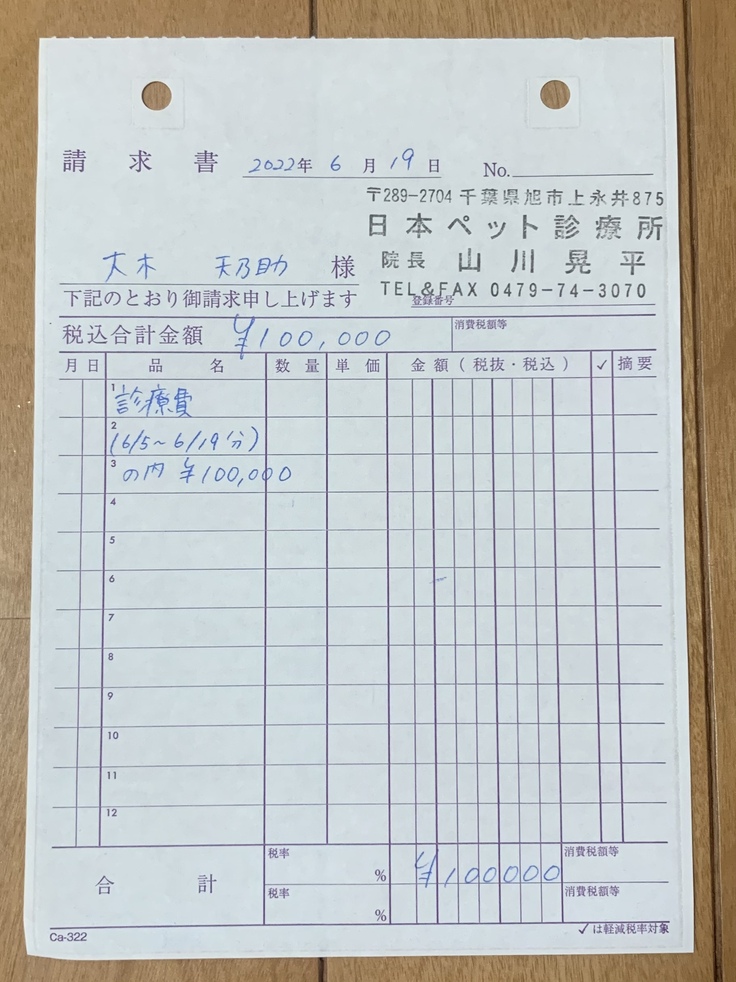 請求書 2022年 6月 19日 No.
〒289-2704 千葉県旭市上永井875
日本ペット診療所
院長 山川晃平
TEL&FAX 0479-74-3070
登録番号
大木 乃助 様
下記のとおり御請求申し上げます
税込合計金額 ¥100,000 消費税額等
月 日 品名 数量 単価 金額(税抜・税込) ✓ 摘要
1 診療費
2 (6/5~6/19分)
3 の内 ¥100,000
4
5
6
7
8
9
10
11
12
合計 税率 % ¥100000 消費税額等
税率 % 消費税額等
Ca-322 ✓は軽減税率対象